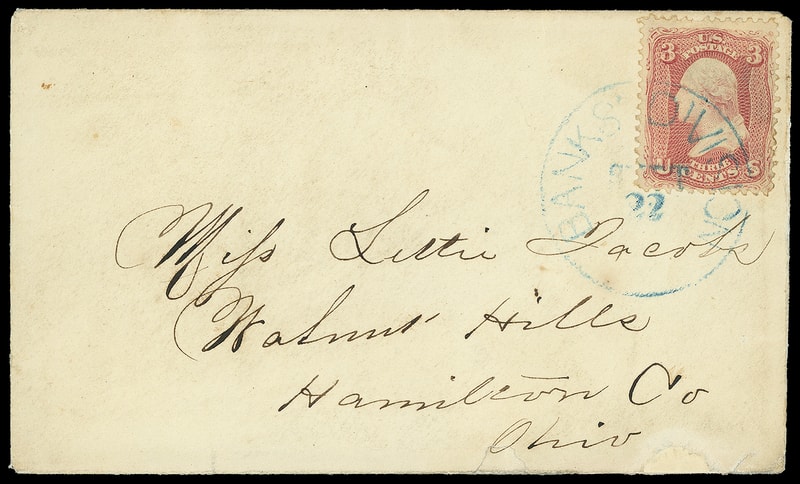 3 U.S. 3
POSTAGE
THREE
U CENTS S
BANKS' DIVISION
22
Miss Lettie Jacobs
Walnut Hills
Hamilton Co
Ohio